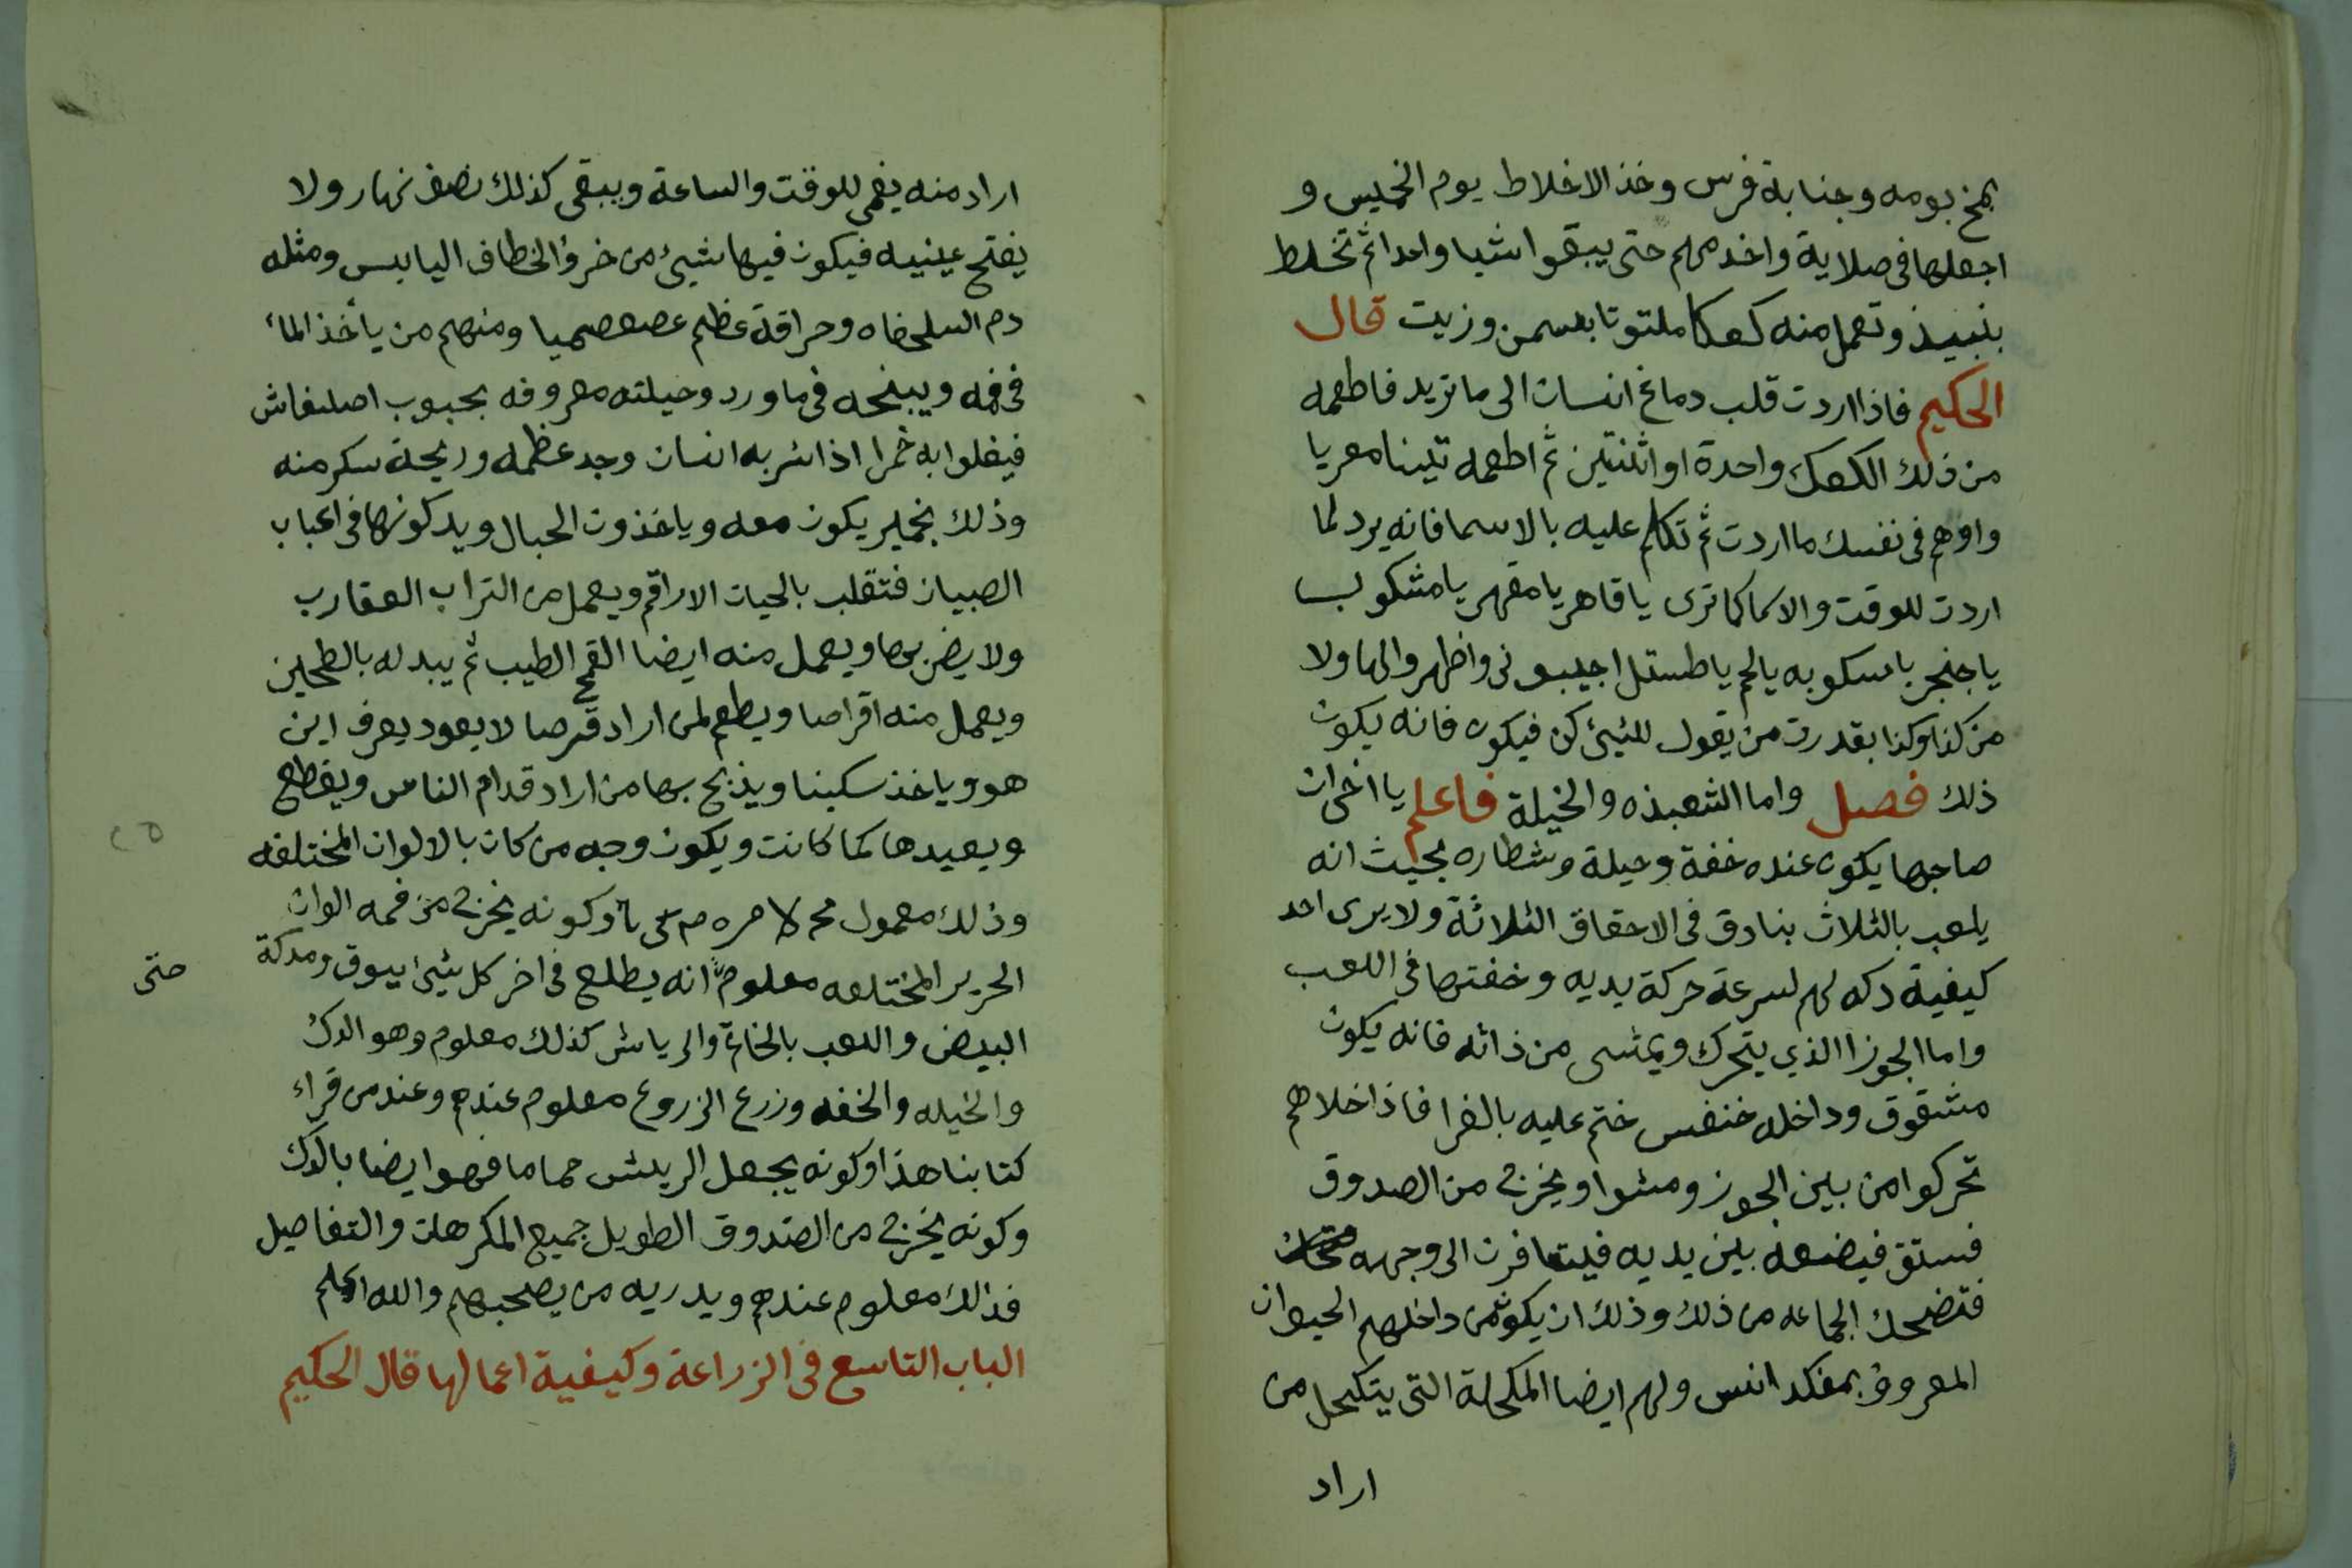 بمخ بومه وجنابة فرس وخذ الاخلاط يوم الخميس و
اجعلها فى صلاية واخدمهم حتى يبقوا شيا واحدا ثم تخلط
بنبيذ وتعمل منه كعكا ملتوتا بسمن وزيت قال
الحكيم فاذا اردت قلب دماغ انسان الى ما تريد فاطعمه
من ذلك الكعك واحدة او اثنتين ثم اطعمه تينا معريا
واوهم فى نفسك ما اردت ثم تكلم عليه بالاسما فانه يرد لما
اردت للوقت والاسما كما ترى يا قاهر يا مقهر يا مشكوب
يا جنجر يا سكوبه يا لحم يا طستل اجيبونى واظهروا لها ولا
من كذا وكذا بقدرت من يقول للشيئ كن فيكون فانه يكون
ذلك فصل واما الشعبذه والخيلة فاعلم يا اخى ان
صاحبها يكون عنده خفة وحيلة وشطاره بحيث انه
يلعب بالثلاث بنادق فى الاحقاق الثلاثة ولا يرى احد
كيفية دكه لهم لسرعة حركة يديه وخفتها فى اللعب
واما الجوزا الذي يتحرك ويمشى من ذاته فانه يكون
مشقوق وداخله خنفس ختم عليه بالغرا فاذا خلاهم
تحركوا من بين الجوز ومشوا ويخرج من الصدوق
فستق فيضعه بين يديه فيتنافرن الى وجهه
فتضحك الجماعه من ذلك وذلك ان يكون من داخلهم الحيوان
المعروف بمفكد انس ولهم ايضا المكحلة التى يتكحل من
اراد
اراد منه يعمى للوقت والساعة ويبقى كذلك نصف نهار ولا
يفتح عينيه فيكون فيها شيئ من خرؤ الخطاف اليابس ومثله
دم السلحفاه وحراقة عظم عصعص ميا ومنهم من ياخذ الماء
فى فمه ويبخه فى ماورد وحيلته معروفه بحبوب
فيغلوا به خمرا اذا شربه انسان وجد عظمه وريحة سكر منه
وذلك بخمير يكون معه وياخذون الحبال ويدكونها فى اعباب
الصبيان فتقلب بالحيات الاراقم ويعمل من التراب العقارب
ولا يضر بها ويعمل منه ايضا القمح الطيب ثم يبدله بالطحين
ويعمل منه اقراصا ويطعم لمن اراد قرصا لا يعود يعرف اين
هو وياخذ سكينا ويذبح بها من اراد قدام الناس ويقطع
ويعيدها كما كانت ويكون وجه من كان بالالوان المختلفه
وذلك معمول وكونه يخرج من فمه الوان
الحرير المختلعه معلوم انه يطلع فى اخر كل شيئ ابيوق ومدكة
حتى
البيض واللعب بالخاتم والرياش كذلك معلوم وهو الدك
والخيله والخفه وزرع الزروع معلوم عندهم وعند من قراء
كتابنا هذا وكونه يجعل الريش حماما فهو ايضا بالدك
وكونه يخرج من الصندوق الطويل جميع المكرهات والتفاصيل
فذلك معلوم عندهم ويدريه من يصحبهم والله اعلم
الباب التاسع فى الزراعة وكيفية اعمالها قال الحكيم